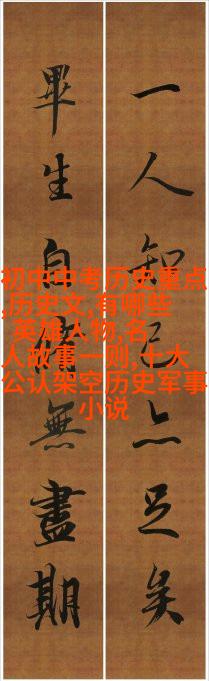 一人知己亦足矣
畢生自無盡期
初中中考历史重点
,历史文,有哪些
英雄人物,名
人故事一则,十大
公认架空历史军事
小说